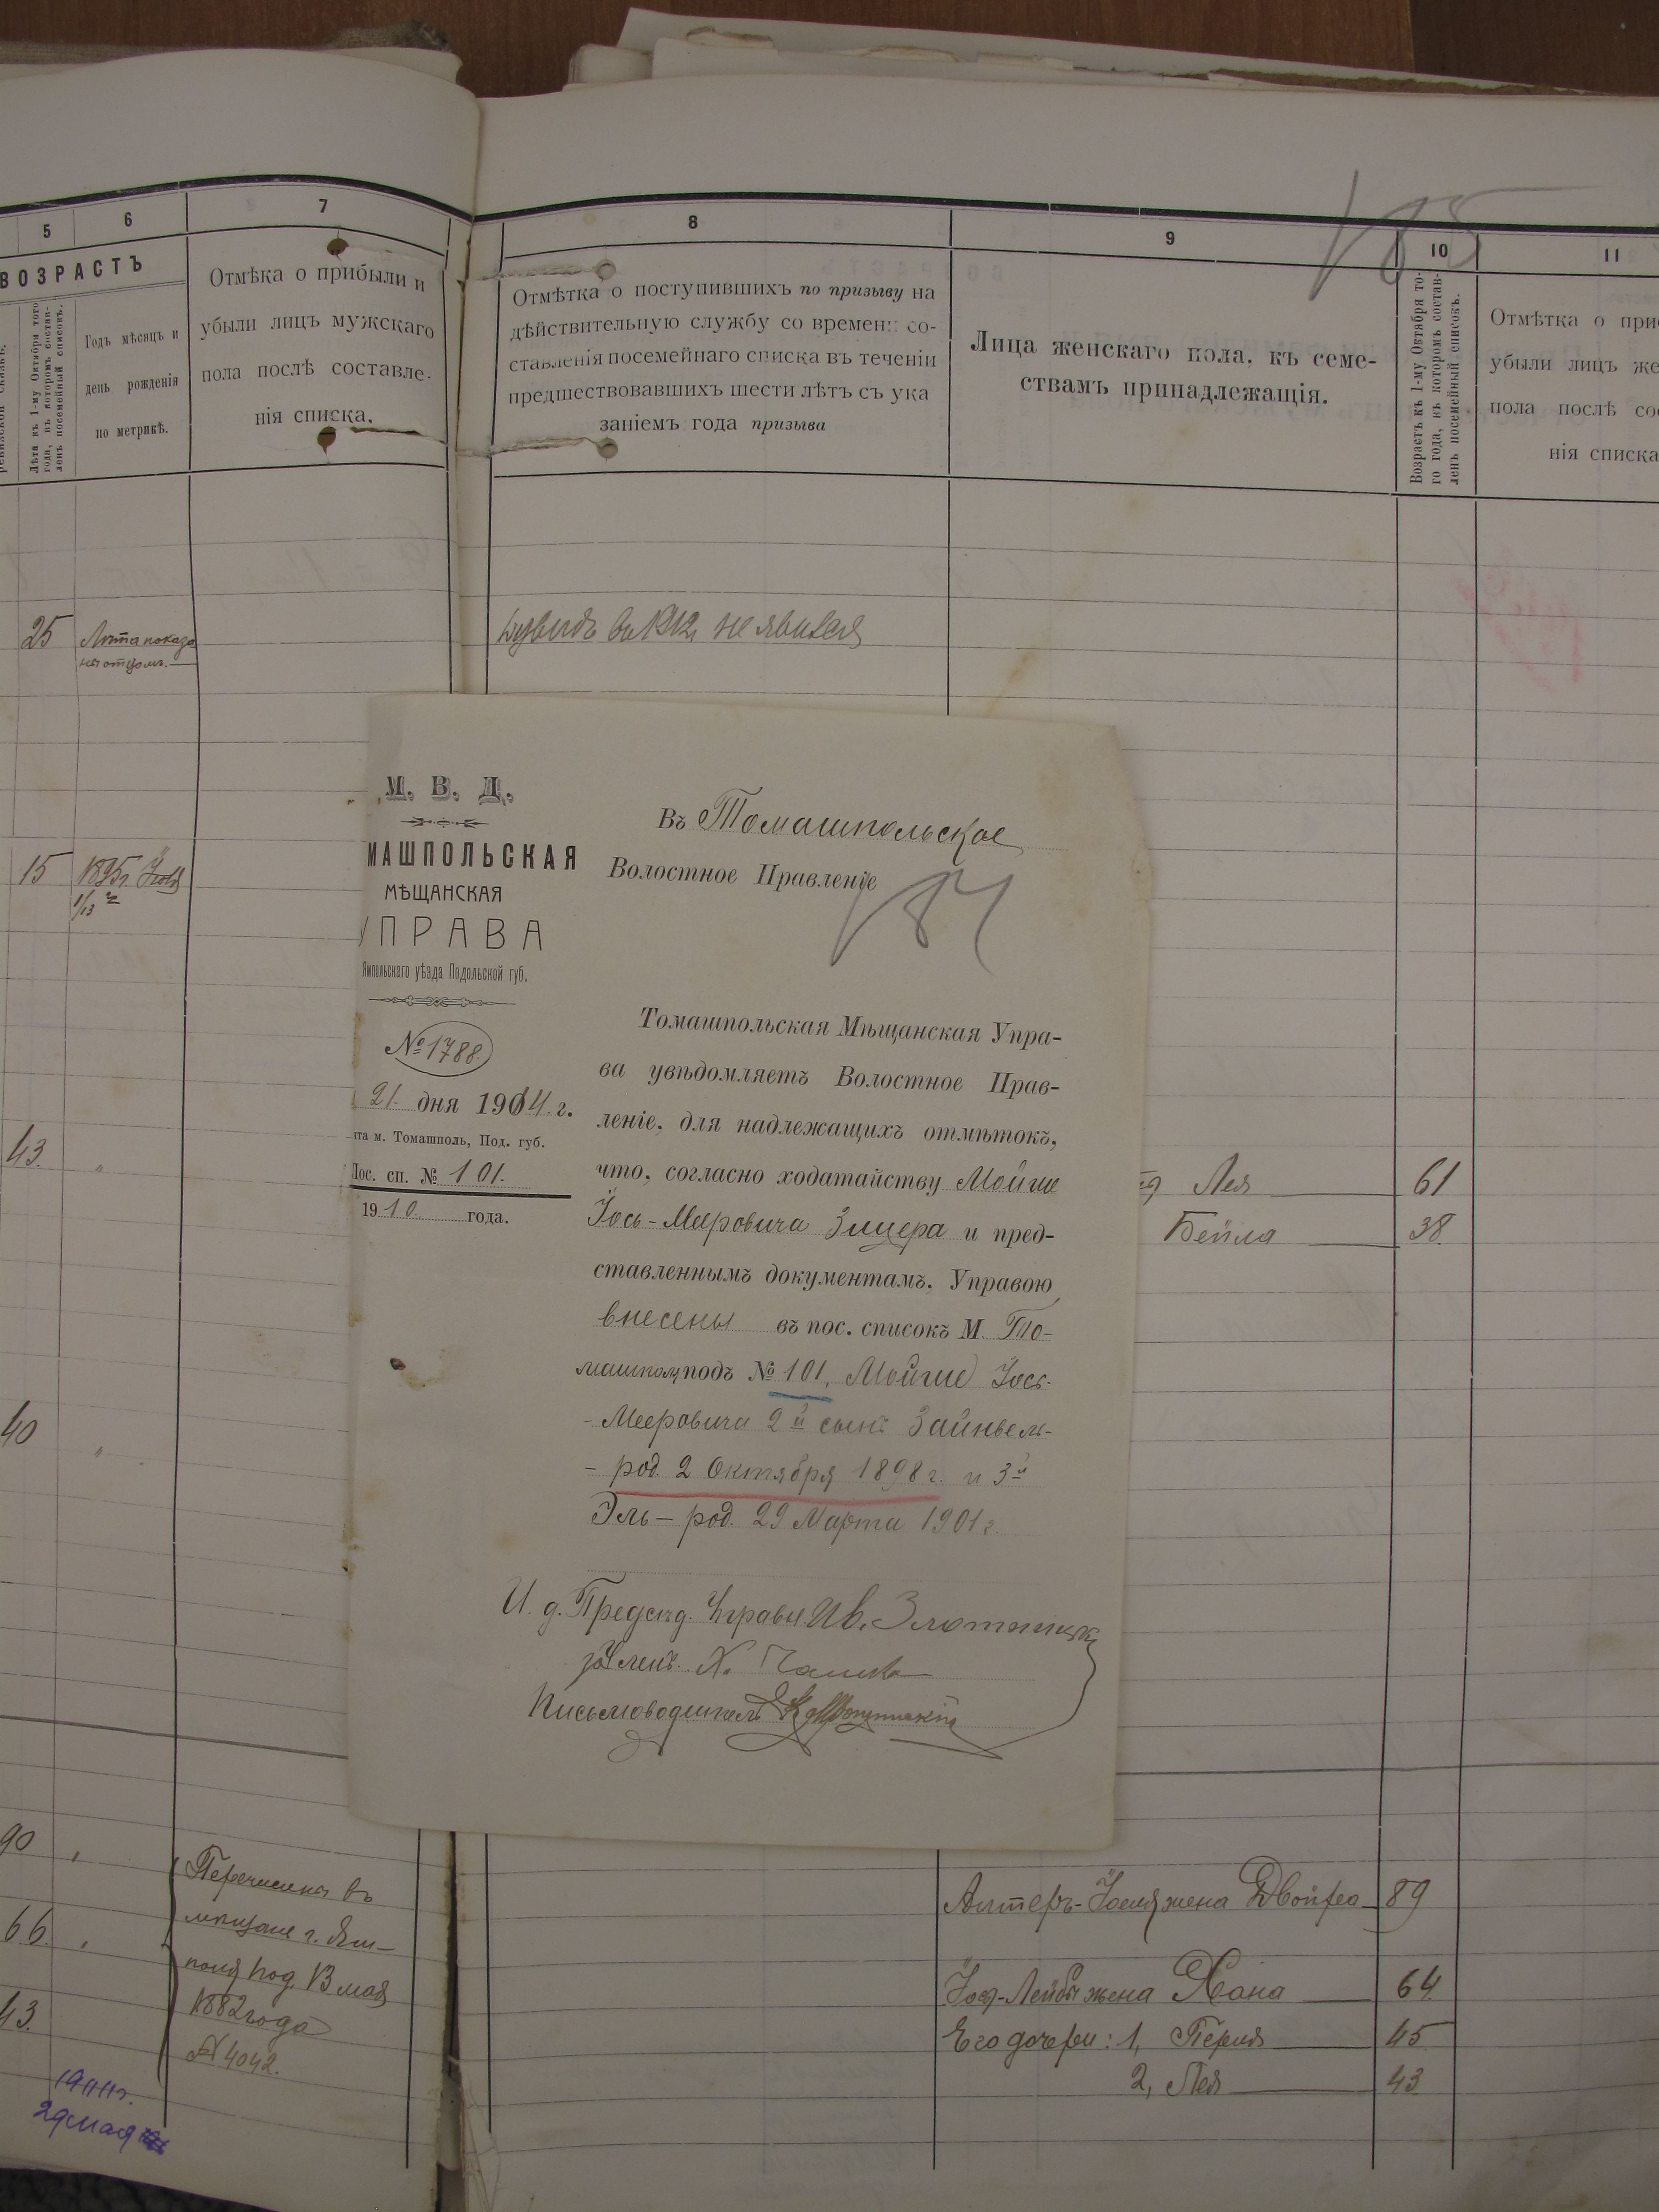 185
5
6
7
8
9
10
11
ВОЗРАСТЪ
Лѣта къ 1-му Октября того
года, въ которомъ состав-
ленъ посемейный списокъ.
Годъ мѣсяцъ и
день рожденія
по метрикѣ.
Отмѣка о прибыли и
убыли лицъ мужскаго
пола послѣ составле-
нія списка.
Отмѣтка о поступившихъ по призыву на
дѣйствительную службу со времени со-
ставленія посемейнаго списка въ теченіи
предшествовавшихъ шести лѣтъ съ ука
заніемъ года призыва
Лица женскаго пола, къ семе-
ствамъ принадлежащія.
Возрастъ къ 1-му Октября то-
го года, въ которомъ состав-
ленъ посемейный списокъ.
Отмѣтка о при
убыли лицъ же
пола послѣ со
нія списка
25
Лѣта показа
ны отцомъ.
въ 1912 не явился
15
1895 г.
43.
"
40
"
М. В. Д.
МАШПОЛЬСКАЯ
МѢЩАНСКАЯ
УПРАВА
Ямпольскаго уѣзда Подольской губ.
№ 1788.
21 дня 1914 г.
м. Томашполь, Под. губ.
Пос. сп. № 101.
1910 года.
Въ Томашпольское
Волостное Правленіе
184
Томашпольская Мѣщанская Упра-
ва увѣдомляетъ Волостное Прав-
леніе, для надлежащихъ отмѣтокъ,
что, согласно ходатайству Мойше
Іось-Мееровича Зицера и пред-
ставленнымъ документамъ, Управою
внесены въ пос. списокъ М. То-
машполя подъ № 101, Мойше Іось-
-Мееровича 2й сынъ Зайнвель-
- род. 2 Октября 1898 г. и 3й
Эль - род. 29 Марта 1901 г.
И. д. Предсѣд. Управы Ив.
за Членъ Х.
Письмоводитель
Лея 61
Бейла 38.
90
66
43.
Перечислены въ
мѣщане г. Ям-
поля под 13 мая
1882 года
№ 4042.
1911 г.
29 мая
жена Двойра 89
Лейбы жена Хана 64
Его дочери: 1, Перля 45
2, Лея 43